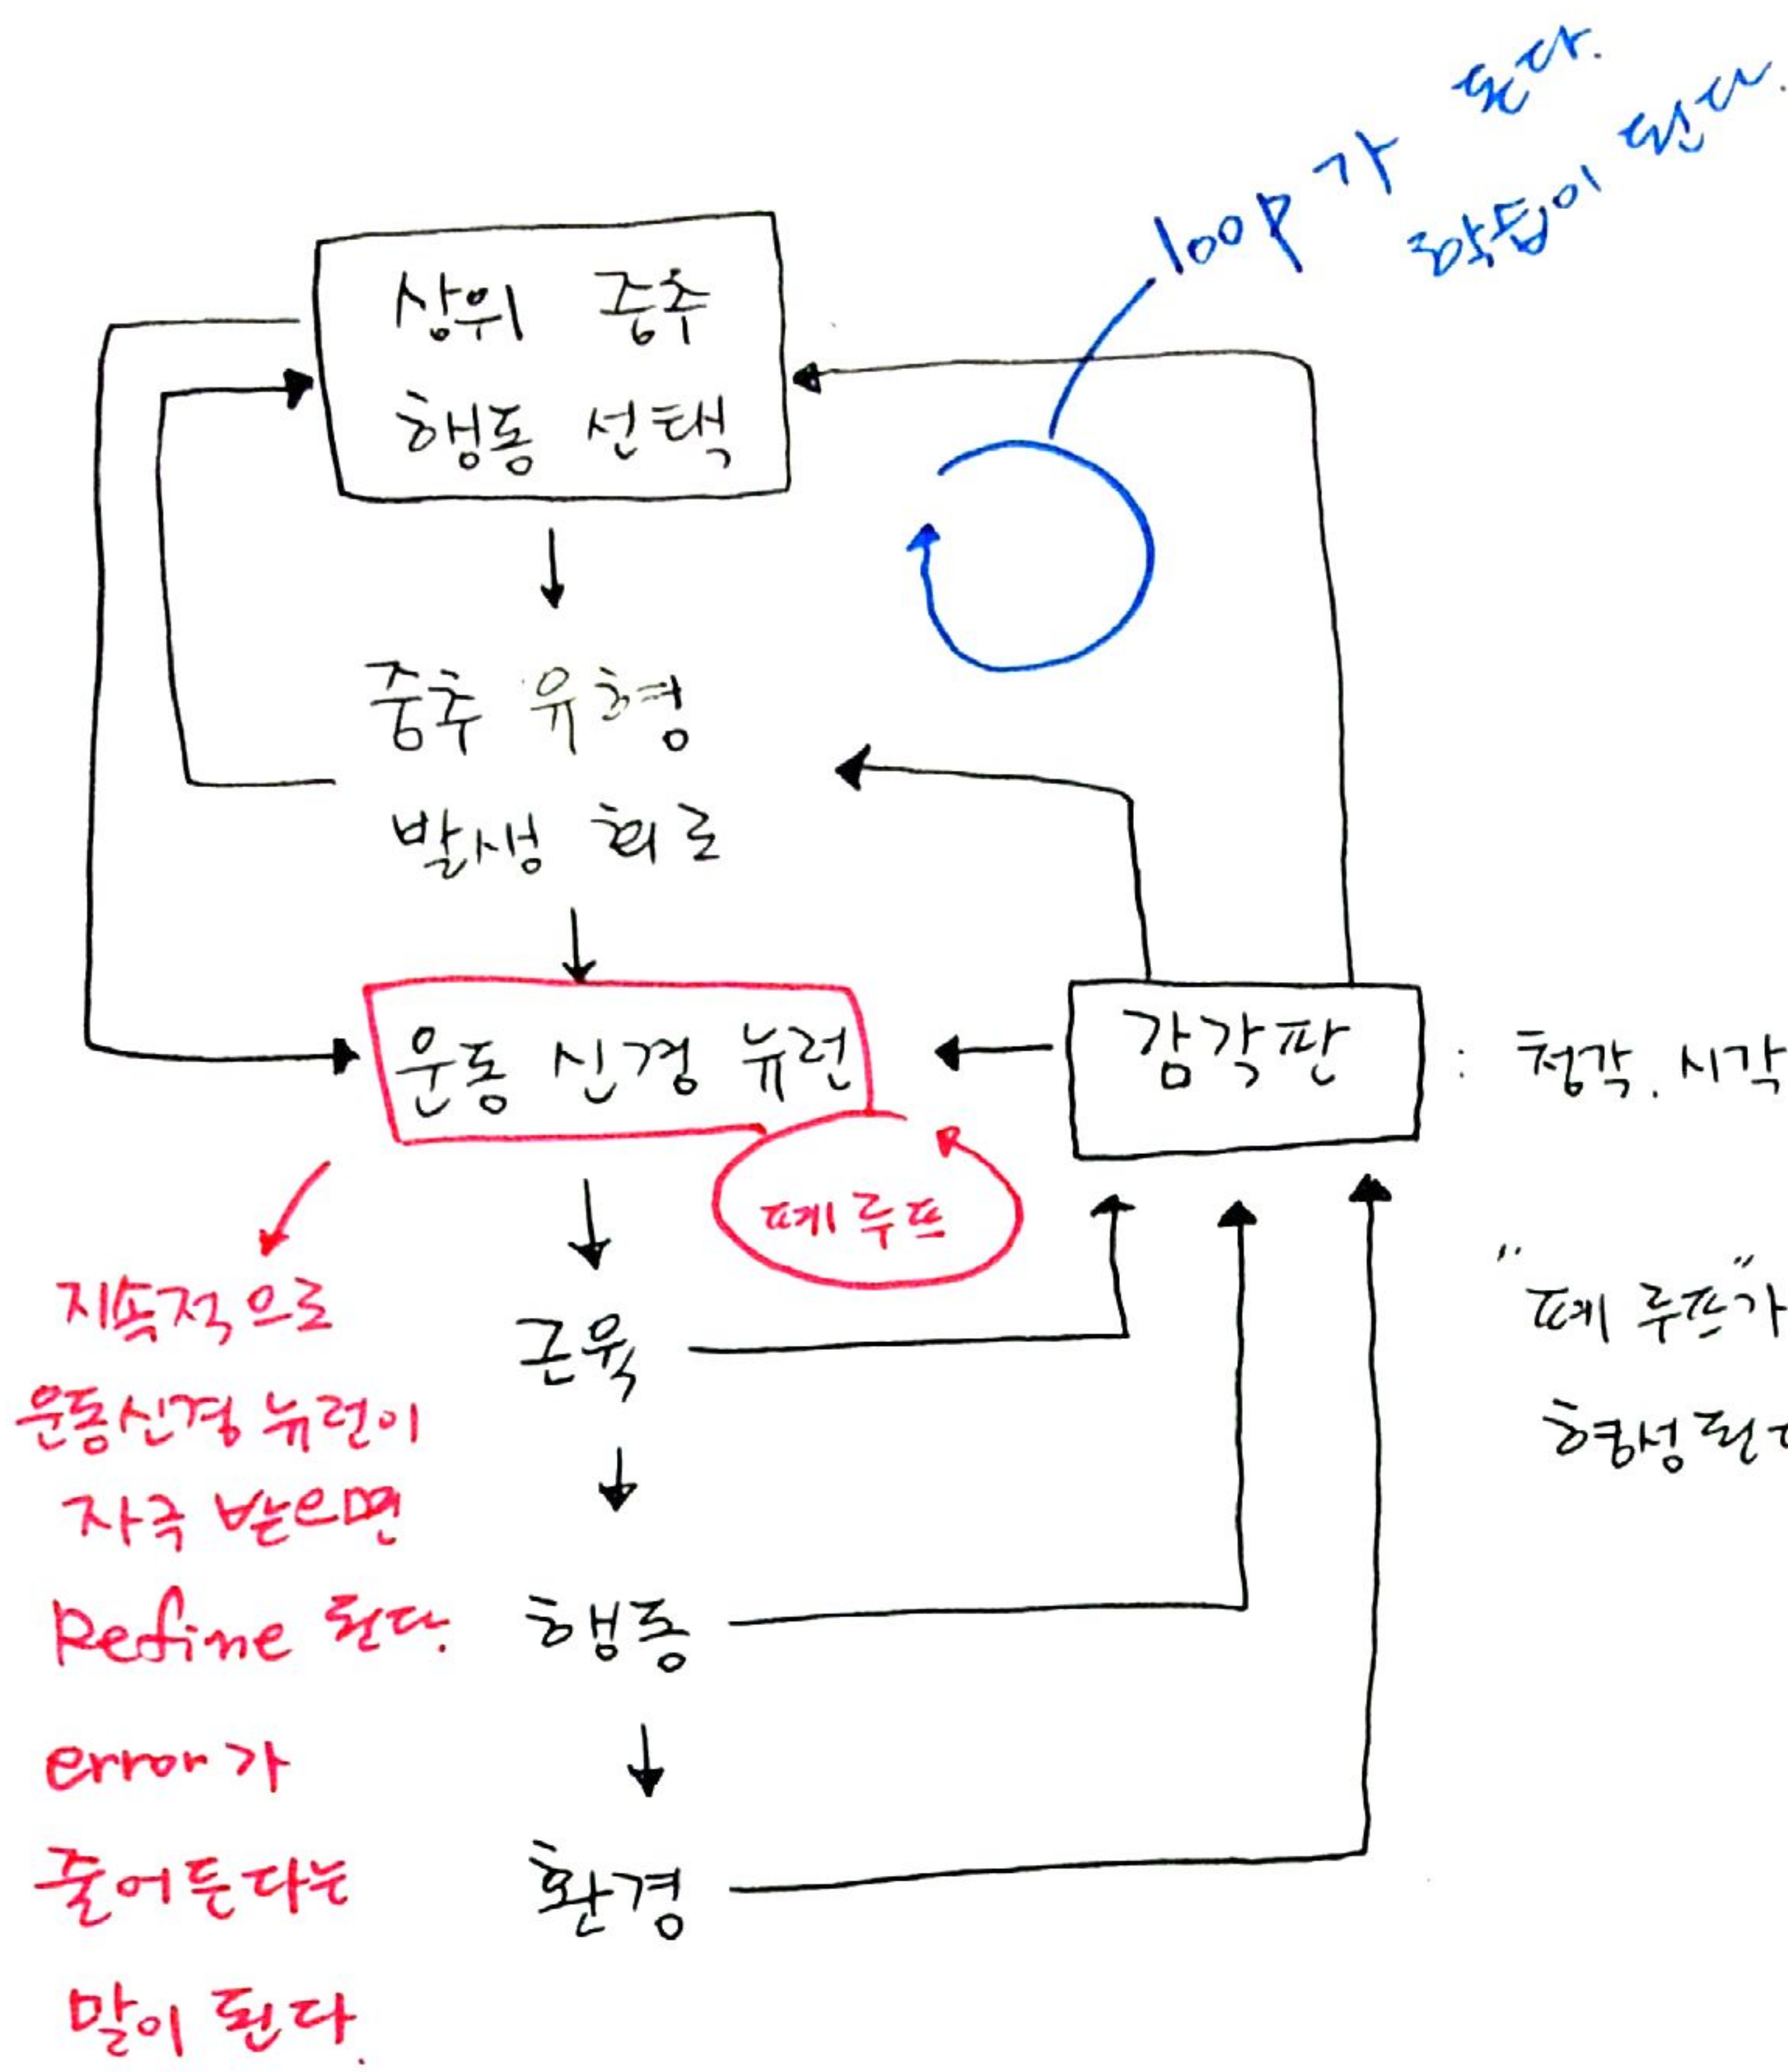 loop가 돈다.
학습이 된다.
상위 중추
행동 선택
중추 유형
발생 회로
운동 신경 뉴런
감각판
: 청각. 시각
폐 루프
"폐 루프"가
형성 된다
지속적으로
운동신경 뉴런이
자극 받으면
Refine 된다.
error가
줄어든다는
말이 된다.
근육
행동
환경